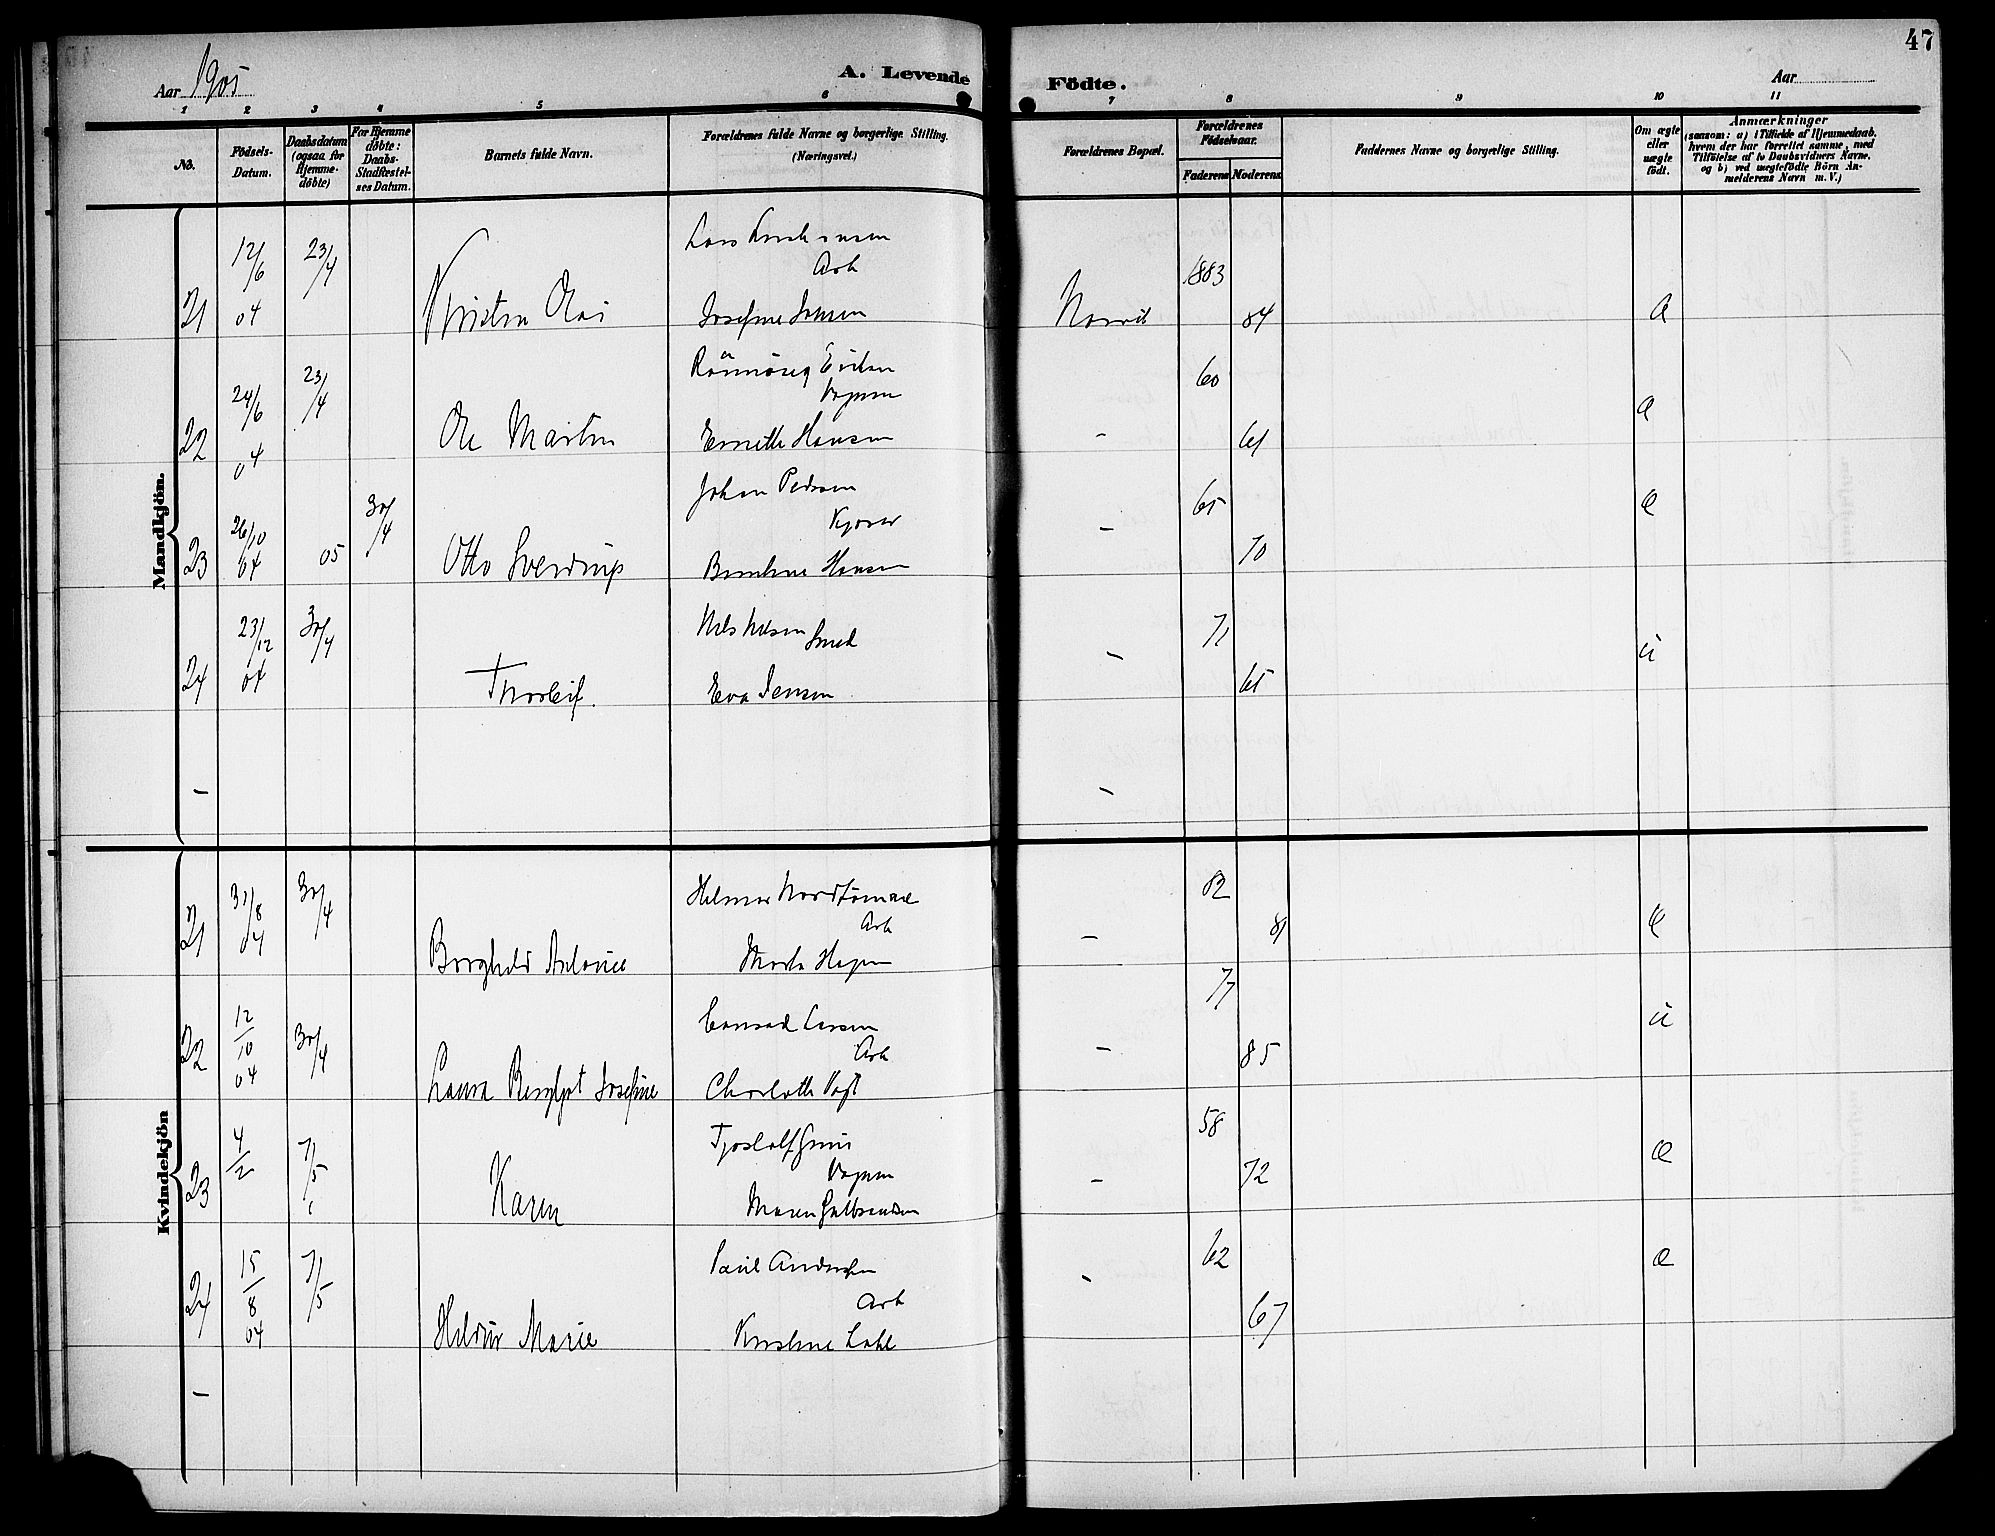 47
Aar 1905
A. Levende
Födte.
Aar
1 2 3 4 5 6 7 8 9 10 11
No.
Födsels-
Datum.
Daabsdatum
(ogsaa for
Hjemme-
döbte)
For Hjemme
döbte:
Daabs-
Stadfæstel-
ses Datum.
Barnets fulde Navn.
Forældrenes fulde Navne og borgerlige Stilling.
(Næringsvei.)
Forældrenes Bopæl.
Forældrenes
Födselsaar.
Faderens Moderens
Faddernes Navne og borgerlige Stilling.
Om ægte
eller
uægte
födt.
Anmærkninger
(saasom: a) i Tilfælde af Hjemmedaab,
hvem der har forrettet samme, med
Tilföielse af to Daabsvidners Navne,
og b) ved uægtefödte Börn An-
melderens Navn m. V.)
Mandkjön.
21 12/6 04 23/4 Kristen Olai
Lars Kristensen
Arb
Josefine Jensen
Narvik 1883 84
22 24/6 04 23/4 Ole Martin
Eriksen
Vognm
Ernette Hansen
- 60 61
23 26/10 04 05 30/4 Otto Sverdrup
Johan Pedersen
Berntine Hansen
- 65 70
24 23/12 04 30/4 Thorleif.
Nils Nilsen Smed
Eva Jensen
- 71 65 u
- -
Kvindekjön
21 31/8 04 30/4 Borghild Antonie
Helmer
Arb
Marta Hagen
- 82 81
22 12/10 04 30/4 Laura Bergljot Josefine
Conrad Larsen
Arb
Charlotte Vogt
- 77 85 u
23 4/2 7/5 Karen
Vognm
Maren Gulbrandsen
- 58 72
24 15/8 04 7/5 Hildur Marie
Paul Andersen
Arb
Kristine Dahl
- 62 67
-